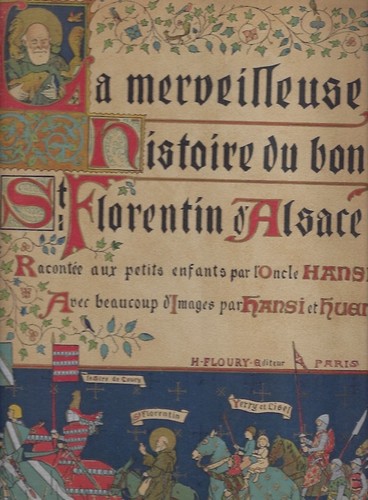 La merveilleuse
histoire du bon
St. Florentin d'Alsace
Racontée aux petits enfants par l'Oncle HANSI
Avec beaucoup d'Images par Hansi et Huen
H·FLOURY·Editeur PARIS
St Florentin
Yerry et Lisel